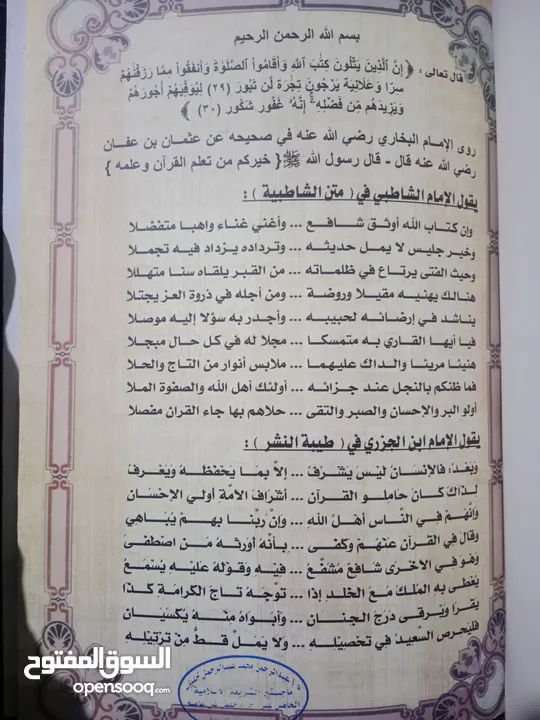 بسم الله الرحمن الرحيم
قال تعالى : ﴿ إِنَّ الَّذِينَ يَتْلُونَ كِتَٰبَ اللَّهِ وَأَقَامُوا۟ الصَّلَوٰةَ وَأَنفَقُوا۟ مِمَّا رَزَقْنَٰهُمْ
سِرًّا وَعَلَانِيَةً يَرْجُونَ تِجَٰرَةً لَّن تَبُورَ (٢٩) لِيُوَفِّيَهُمْ أُجُورَهُمْ
وَيَزِيدَهُم مِّن فَضْلِهِ ۚ إِنَّهُ غَفُورٌ شَكُورٌ (٣٠) ﴾
روى الإمام البخاري رضي الله عنه في صحيحه عن عثمان بن عفان
رضي الله عنه قال - قال رسول الله ﷺ { خيركم من تعلم القرآن وعلمه }
يقول الإمام الشاطبي في ( متن الشاطبية ) :
وإن كتاب الله أوثق شافع ... وأغني غناء واهبا متفضلا
وخير جليس لا يمل حديثه ... وترداده يزداد فيه تجملا
وحيث الفتى يرتاع في ظلماته ... من القبر يلقاه سنا متهللا
هنالك يهنيه مقيلا وروضة ... ومن أجله في ذروة العز يجتلا
يناشد في إرضائه لحبيبه ... وأجدر به سؤلا إليه موصلا
فيا أيها القاري به متمسكا ... مجلا له في كل حال مبجلا
هنيئا مريئا والداك عليهما ... ملابس أنوار من التاج والحلا
فما ظنكم بالنجل عند جزائه ... أولئك أهل الله والصفوة الملا
أولو البر والإحسان والصبر والتقى ... حلاهم بها جاء القران مفصلا
يقول الإمام ابن الجزري في ( طيبة النشر ) :
وَبَعْدُ: فَالإِنْسَانُ لَيْسَ يَشْرُفُ ... إِلاَّ بِمَا يَحْفَظُهُ وَيَعْرِفُ
لِذَاكَ كَانَ حَامِلُو القُرآنِ ... أَشْرَافَ الأُمَّةِ أُولِي الإِحْسَانِ
وَإِنَّهُمْ فِي النَّاسِ أَهْلُ اللهِ ... وَإِنَّ رَبَّنَا بِهِمْ يُبَاهِي
وَقَالَ فِي القُرآنِ عَنْهُمْ وَكَفَى ... بِأَنَّهُ أَوْرَثَهُ مَنِ اصْطَفَى
وَهُوَ فِي الأُخْرَى شَافِعٌ مُشَفَّعُ ... فِيهِ وَقَوْلُهُ عَلَيْهِ يُسْمَعُ
يُعْطَى بِهِ المُلْكَ مَعَ الخُلْدِ إِذَا ... تَوَّجَهُ تَاجَ الكَرَامَةِ كَذَا
يَقْرَا وَيَرْقَى دَرَجَ الجِنَانِ ... وَأَبَوَاهُ مِنْهُ يُكْسَيَانِ
فَلْيَحْرِصِ السَّعِيدُ فِي تَحْصِيلِهِ ... وَلاَ يَمَلَّ قَطُّ مِنْ تَرْتِيلِهِ
السوق المفتوح
opensooq.com
ماجستير الشريعة الإسلامية